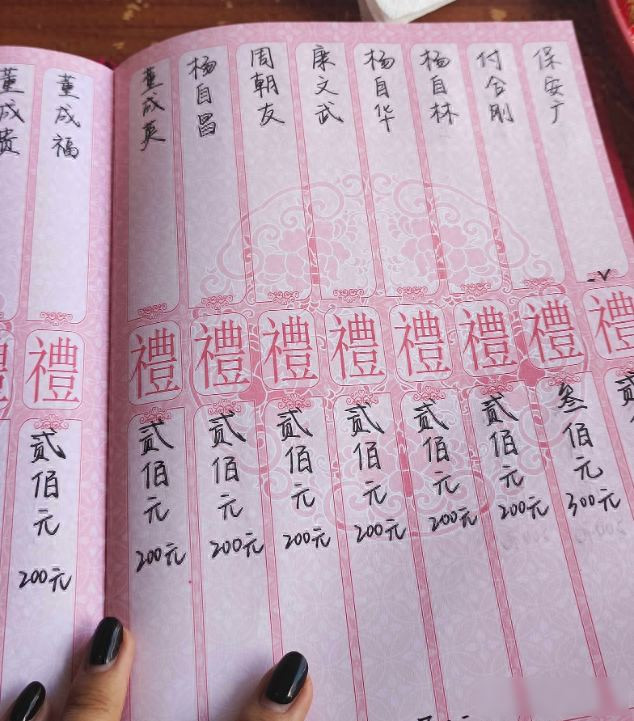 保安广
禮
付合刚
禮
叁佰元
300元
杨自林
禮
贰佰元
200元
杨自华
禮
贰佰元
200元
康文武
禮
贰佰元
200元
周朝友
禮
贰佰元
200元
杨自昌
禮
贰佰元
200元
董成英
禮
贰佰元
200元
董成福
禮
贰佰元
200元
董成贵